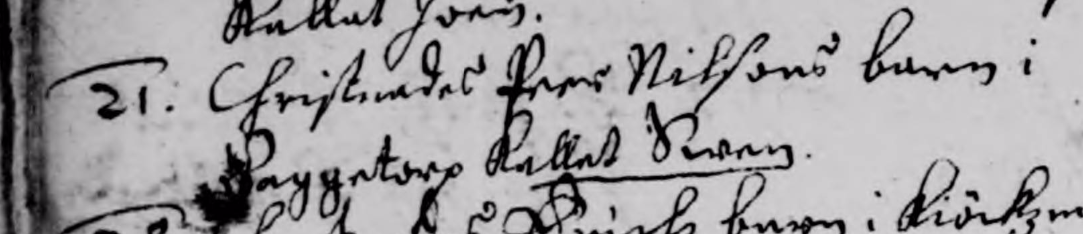 Kallat Joen.
21. Christnades Peer Nilsons barn i
Baggetorp Kallat Swen.
barn i Kiöckzm